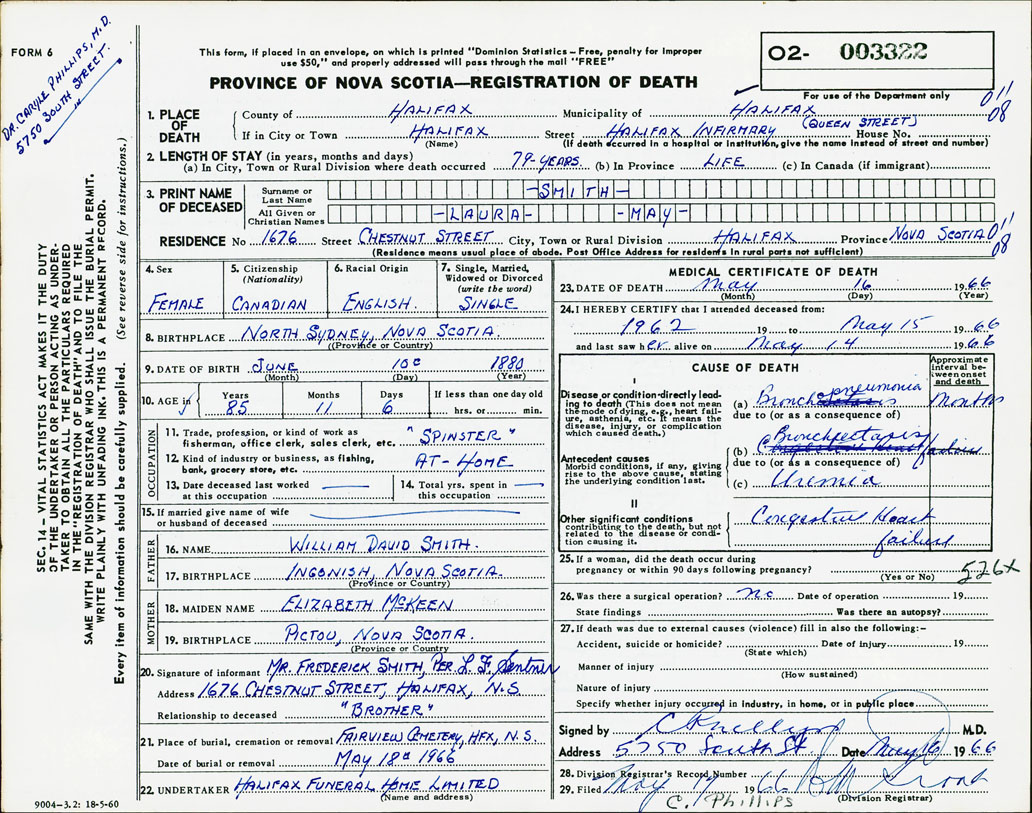 FORM 6
DR. CARYLE PHILLIPS, M.D.
5750 SOUTH STREET.
This form, if placed in an envelope, on which is printed "Dominion Statistics – Free, penalty for improper
use $50," and properly addressed will pass through the mail "FREE"
PROVINCE OF NOVA SCOTIA—REGISTRATION OF DEATH
02- 003322
For use of the Department only
011
08
1. PLACE OF DEATH
County of HALIFAX Municipality of HALIFAX
(QUEEN STREET)
If in City or Town HALIFAX Street HALIFAX INFIRMARY House No.
(Name) (If death occurred in a hospital or institution, give the name instead of street and number)
2. LENGTH OF STAY (in years, months and days)
(a) In City, Town or Rural Division where death occurred 79-YEARS. (b) In Province LIFE (c) In Canada (if immigrant)
3. PRINT NAME OF DECEASED
Surname or Last Name -SMITH-
All Given or Christian Names -LAURA- -MAY-
RESIDENCE No 1676 Street CHESTNUT STREET City, Town or Rural Division HALIFAX Province NOVA SCOTIA 011
08
(Residence means usual place of abode. Post Office Address for residents in rural parts not sufficient)
4. Sex
FEMALE
5. Citizenship
(Nationality)
CANADIAN
6. Racial Origin
ENGLISH.
7. Single, Married,
Widowed or Divorced
(write the word)
SINGLE
8. BIRTHPLACE NORTH SYDNEY, NOVA SCOTIA.
(Province or Country)
9. DATE OF BIRTH JUNE 10th 1880
(Month) (Day) (Year)
10. AGE in Years Months Days If less than one day old
85 11 6 hrs. or min.
OCCUPATION
11. Trade, profession, or kind of work as
fisherman, office clerk, sales clerk, etc. "SPINSTER"
12. Kind of industry or business, as fishing,
bank, grocery store, etc. AT-HOME
13. Date deceased last worked
at this occupation
14. Total yrs. spent in
this occupation
15. If married give name of wife
or husband of deceased
FATHER
16. NAME WILLIAM DAVID SMITH.
17. BIRTHPLACE INGONISH, NOVA SCOTIA.
(Province or Country)
MOTHER
18. MAIDEN NAME ELIZABETH MCKEEN
19. BIRTHPLACE PICTOU, NOVA SCOTIA.
(Province or Country)
20. Signature of informant MR. FREDERICK SMITH, PER L. F. Sentner
Address 1676 CHESTNUT STREET, HALIFAX, N.S.
Relationship to deceased "BROTHER"
21. Place of burial, cremation or removal FAIRVIEW CEMETERY, HFX, N.S.
Date of burial or removal MAY 18th 1966
22. UNDERTAKER HALIFAX FUNERAL HOME LIMITED
(Name and address)
9004-3.2: 18-5-60
MEDICAL CERTIFICATE OF DEATH
23. DATE OF DEATH May 16 1966
(Month) (Day) (Year)
24. I HEREBY CERTIFY that I attended deceased from:
1962 19 to May 15 1966
and last saw her alive on May 14 1966
CAUSE OF DEATH
Approximate interval between onset and death
I
Disease or condition directly leading to death (This does not mean the mode of dying, e.g., heart failure, asthenia, etc. It means the disease, injury, or complication which caused death.)
(a) Bronchopneumonia Months
due to (or as a consequence of)
Antecedent causes
Morbid conditions, if any, giving rise to the above cause, stating the underlying condition last.
(b) Bronchiectasis
due to (or as a consequence of)
(c) Uremia
II
Other significant conditions
contributing to the death, but not related to the disease or condition causing it.
Congestive Heart
failure
25. If a woman, did the death occur during
pregnancy or within 90 days following pregnancy?
(Yes or No) 526X
26. Was there a surgical operation? no Date of operation 19
State findings Was there an autopsy?
27. If death was due to external causes (violence) fill in also the following:–
Accident, suicide or homicide? Date of injury 19
(State which)
Manner of injury
(How sustained)
Nature of injury
Specify whether injury occurred in industry, in home, or in public place
Signed by C Phillips M.D.
Address 5750 South St Date May 16 1966
28. Division Registrar's Record Number
29. Filed May 17 1966
(Division Registrar)
C. PHILLIPS
SEC. 14 – VITAL STATISTICS ACT MAKES IT THE DUTY
OF THE UNDERTAKER OR PERSON ACTING AS UNDER-
TAKER TO OBTAIN ALL THE PARTICULARS REQUIRED
IN THE "REGISTRATION OF DEATH" AND TO FILE THE
SAME WITH THE DIVISION REGISTRAR WHO SHALL ISSUE THE BURIAL PERMIT.
WRITE PLAINLY WITH UNFADING INK. THIS IS A PERMANENT RECORD.
Every item of information should be carefully supplied. (See reverse side for instructions.)